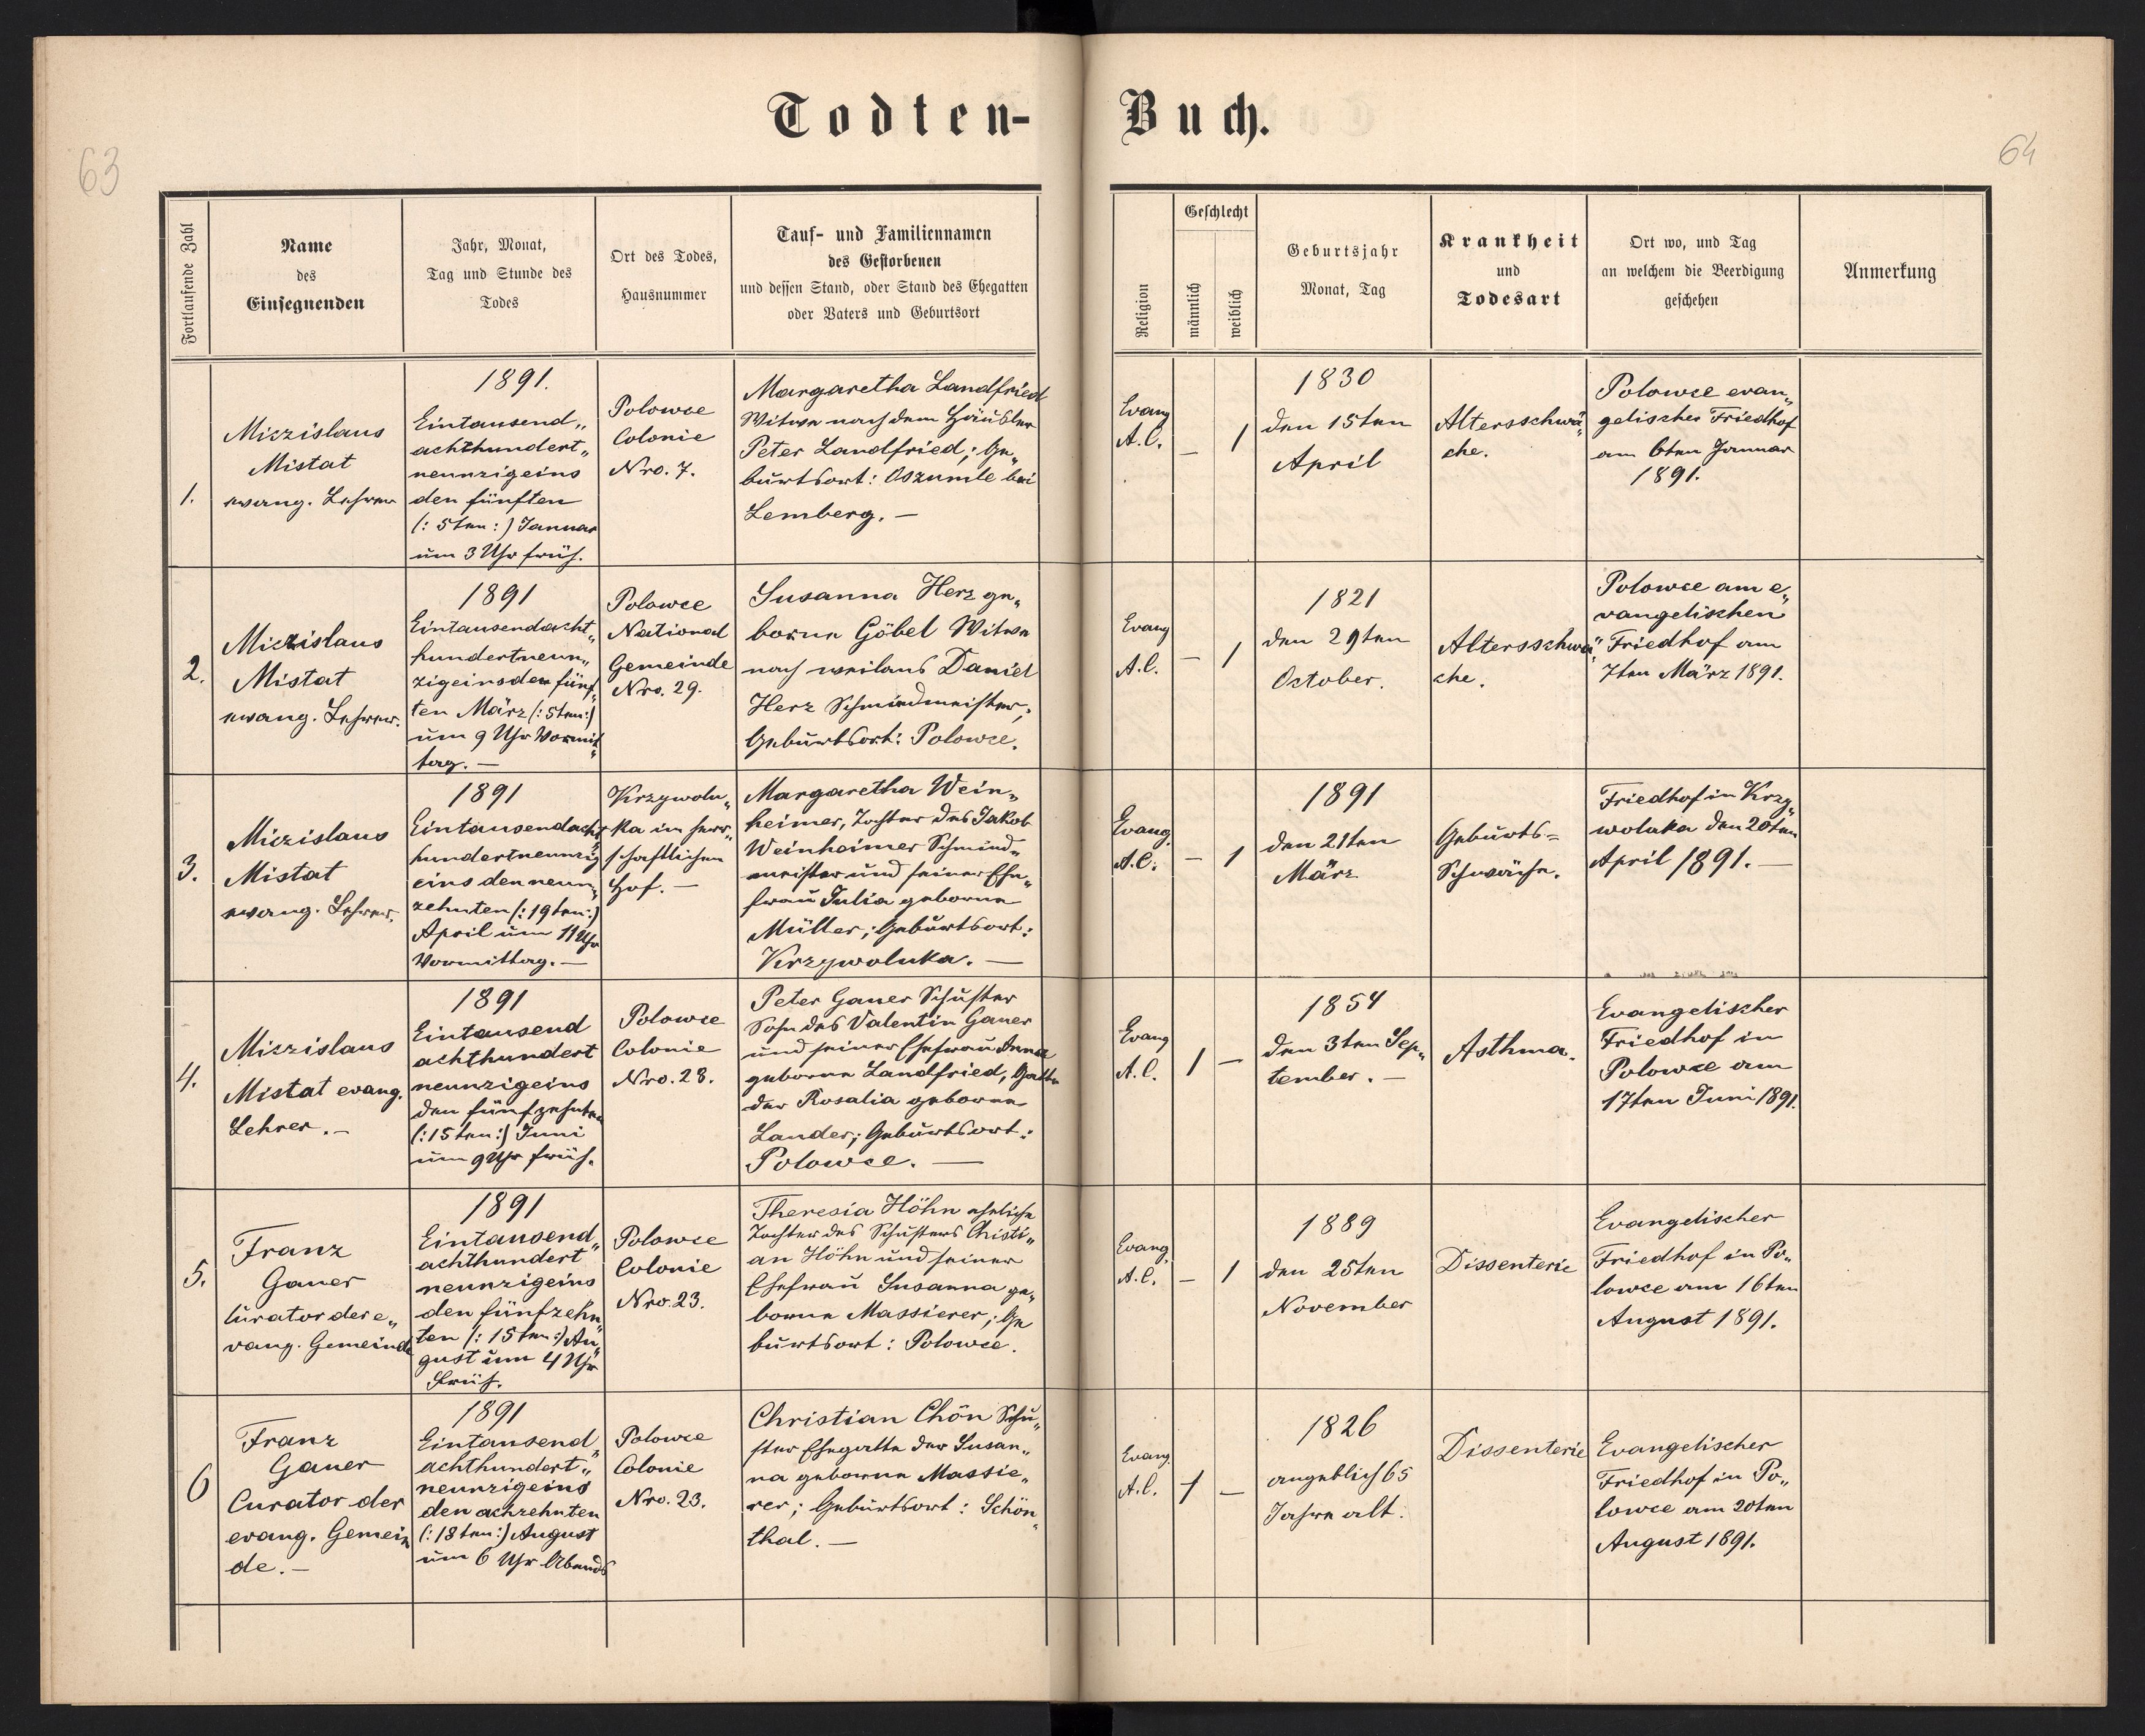 Todten- Buch.
63
64
Fortlaufende Zahl
Name
des
Einsegnenden
Jahr, Monat,
Tag und Stunde des
Todes
Ort des Todes,
Hausnummer
Tauf- und Familiennamen
des Gestorbenen
und dessen Stand, oder Stand des Ehegatten
oder Vaters und Geburtsort
Religion
Geschlecht
männlich
weiblich
Geburtsjahr
Monat, Tag
Krankheit
und
Todesart
Ort wo, und Tag
an welchem die Beerdigung
geschehen
Anmerkung
1.
Miezislaus
Mistat
evang. Lehrer
1891.
Eintausend„
achthundert„
neunzigeins
den fünften
(: 5ten :) Januar
um 3 Uhr früh.
Polowce
Colonie
Nro. 7.
Margaretha Landfried
Witwe nach dem Häusler
Peter Landfried; Ge„
burtsort: Oszumle bei
Lemberg. —
Evang
A.C.
— 1
1830
den 15ten
April
Altersschwä„
che.
Polowce evan„
gelischer Friedhof
am 6ten Januar
1891.
2.
Miezislaus
Mistat
evang. Lehrer.
1891
Eintausendacht„
hundertneun„
zigeinsden fünf„
ten März (: 5ten :)
um 9 Uhr Vormit„
tag. —
Polowce
National
Gemeinde
Nro. 29.
Susanna Herz ge„
borne Göbel Witwe
nach weilans Daniel
Herz Schmiedmeister;
Geburtsort: Polowce.
Evang
A.C.
— 1
1821
den 29ten
October.
Altersschwä„
che.
Polowce am e„
vangelischen
Friedhof am
7ten März 1891.
3.
Miezislaus
Mistat
evang. Lehrer.
1891
Eintausendacht„
hundertneunzig
eins den neun„
zehnten (: 19ten :)
April um 11 Uhr
Vormittag. —
Krzywolu„
ka im herr„
schaftlichen
Hof. —
Margaretha Wein„
heimer, Tochter des Jakob
Weinheimer Schmied„
meister und seiner Ehe„
frau Julia geborne
Müller; Geburtsort:
Krzywoluka. —
Evang.
A.C.
— 1
1891
den 21ten
März
Geburts=
Schwäche.
Friedhof in Krzy„
woluka den 20ten
April 1891. —
4.
Miezislaus
Mistat evang.
Lehrer. —
1891
Eintausend
achthundert
neunzigeins
den fünfzehnten
(: 15ten :) Juni
um 9 Uhr früh.
Polowce
Colonie
Nro. 28.
Peter Ganer Schuster
Sohn des Valentin Ganer
und seiner Ehefrau Anna
geborne Landfried, Gatte
der Rosalia geborne
Lander; Geburtsort:
Polowce. —
Evang
A.C.
1 —
1854
den 3ten Sep„
tember. —
Asthma.
Evangelischer
Friedhof in
Polowce am
17ten Juni 1891.
5.
Franz
Ganer
Curator der e„
vang. Gemeinde
1891
Eintausend„
achthundert
neunzigeins
den fünfzehn„
ten (: 15ten :) Au„
gust um 4 Uhr
Früh.
Polowce
Colonie
Nro. 23.
Theresia Höhn eheliche
Tochter des Schusters Christi„
an Höhn und seiner
Ehefrau Susanna ge„
borne Massierer; Ge
burtsort: Polowce.
Evang.
A.C.
— 1
1889
den 25ten
November
Dissenterie
Evangelischer
Friedhof in Po„
lowce am 16ten
August 1891.
6
Franz
Ganer
Curator der
evang. Gemein
de. —
1891
Eintausend„
achthundert„
neunzigeins
den achzehnten
(: 18ten :) August
um 6 Uhr Abends
Polowce
Colonie
Nro. 23.
Christian Chön Schu„
ster Ehegatte der Susan„
na geborne Massie„
rer; Geburtsort: Schön„
thal. —
Evang.
A.C.
1 —
1826
angeblich 65
Jahre alt.
Dissenterie
Evangelischer
Friedhof in Po„
lowce am 20ten
August 1891.